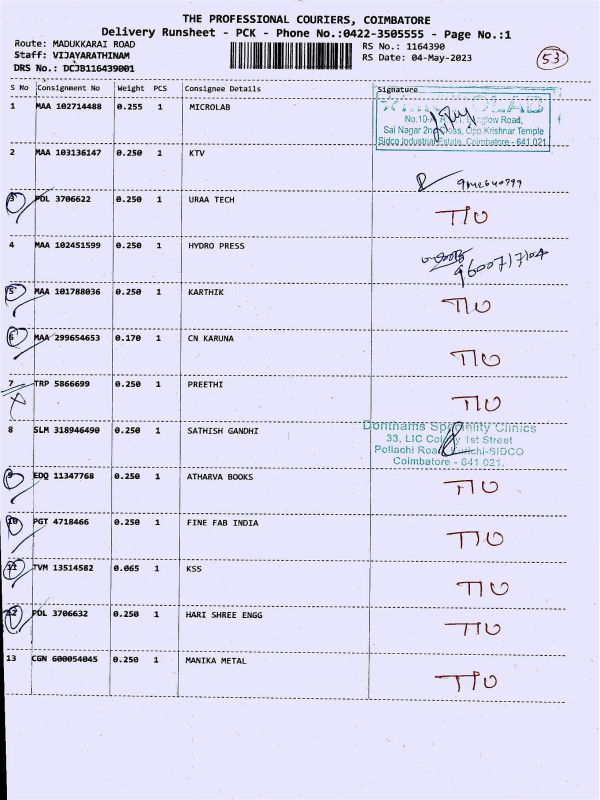 THE PROFESSIONAL COURIERS, COIMBATORE
Delivery Runsheet - PCK - Phone No.:0422-3505555 - Page No.:1
Route: MADUKKARAI ROAD RS No.: 1164390
Staff: VIJAYARATHINAM RS Date: 04-May-2023
DRS No.: DCJB116439001
53
S No Consignment No Weight PCS Consignee Details Signature
1 MAA 102714488 0.255 1 MICROLAB
No.10-A
Sai Nagar Opp.Krishnar Temple
Sidco Industrial Estate, Coimbatore - 641 021
2 MAA 103136147 0.250 1 KTV
3 PDL 3706622 0.250 1 URAA TECH T/U
4 MAA 102451599 0.250 1 HYDRO PRESS
9600717104
5 MAA 101788036 0.250 1 KARTHIK T/U
6 MAA 299654653 0.170 1 CN KARUNA T/U
7 TRP 5866699 0.250 1 PREETHI T/U
8 SLM 318946490 0.250 1 SATHISH GANDHI
33, LIC Colony 1st Street
Pollachi Road, Kurichi-SIDCO
Coimbatore - 641 021.
9 EDQ 11347768 0.250 1 ATHARVA BOOKS T/U
10 PGT 4718466 0.250 1 FINE FAB INDIA T/U
11 TVM 13514582 0.065 1 KSS T/U
12 PDL 3706632 0.250 1 HARI SHREE ENGG T/U
13 CGN 600054045 0.250 1 MANIKA METAL T/U